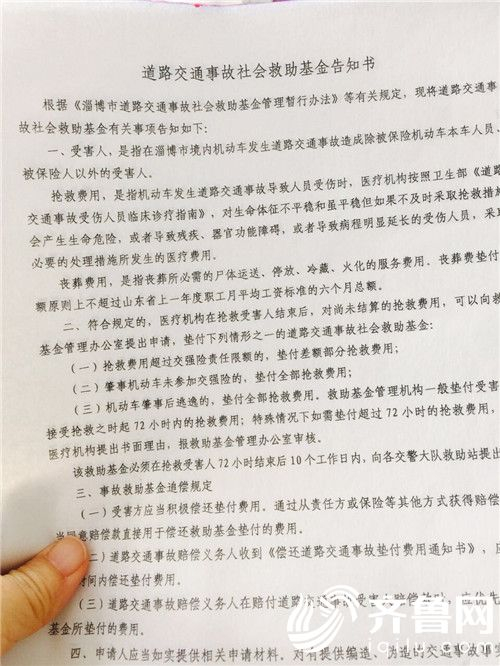 道路交通事故社会救助基金告知书
根据《淄博市道路交通事故社会救助基金管理暂行办法》等有关规定，现将道路交通事
故社会救助基金有关事项告知如下：
一、受害人，是指在淄博市境内机动车发生道路交通事故造成除被保险机动车本车人员、
被保险人以外的受害人。
抢救费用，是指机动车发生道路交通事故导致人员受伤时，医疗机构按照卫生部《道路
交通事故受伤人员临床诊疗指南》，对生命体征不平稳和虽平稳但如果不及时采取抢救措施
会产生生命危险，或者导致残疾、器官功能障碍，或者导致病程明显延长的受伤人员，采取
必要的处理措施所发生的医疗费用。
丧葬费用，是指丧葬所必需的尸体运送、停放、冷藏、火化的服务费用。丧葬费垫付
额原则上不超过山东省上一年度职工月平均工资标准的六个月总额。
二、符合规定的，医疗机构在抢救受害人结束后，对尚未结算的抢救费用，可以向救
基金管理办公室提出申请，垫付下列情形之一的道路交通事故社会救助基金：
（一）抢救费用超过交强险责任限额的，垫付差额部分抢救费用；
（二）肇事机动车未参加交强险的，垫付全部抢救费用；
（三）机动车肇事后逃逸的，垫付全部抢救费用。救助基金管理机构一般垫付受害
接受抢救之时起72小时内的抢救费用；特殊情况下如需垫付超过72小时的抢救费用，
医疗机构提出书面理由，报救助基金管理办公室审核。
该救助基金必须在抢救受害人72小时结束后10个工作日内，向各交警大队救助站提出
三、事故救助基金追偿规定
（一）受害方应当积极偿还垫付费用。通过从责任方或保险等其他方式获得赔偿
当同意赔偿款直接用于偿还救助基金垫付的费用。
二）道路交通事故赔偿义务人收到《偿还道路交通事故垫付费用通知书》，应
时间内偿还垫付费用。
（三）道路交通事故赔偿义务人在赔付道路交通事故受害人赔偿款时，应优先
基金所垫付的费用。
四、申请人应当如实提供相关申请材料，对有提供编造、伪造出交通事故
齐鲁网
iqilu.com